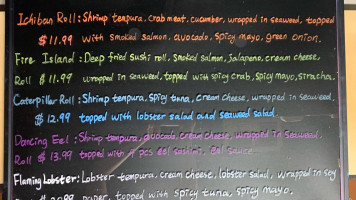 Ichiban Roll: Shrimp tempura, crab meat, cucumber, wrapped in seaweed, topped
$11.99 with smoked salmon, avocado, spicy mayo, green onion.
Fire Island: Deep fried sushi roll, smoked salmon, jalapeno, cream cheese,
Roll $11.99 wrapped in seaweed, topped with spicy crab, spicy mayo, siracha.
Caterpillar Roll: Shrimp tempura, spicy tuna, cream cheese, wrapped in seaweed,
$12.99 topped with lobster salad and seaweed salad.
Dancing Eel: Shrimp tempura, avocado, cream cheese, wrapped in seaweed,
Roll $13.99 topped with 9 pcs eel sashimi, eel sauce.
Flaming Lobster: Lobster tempura, cream cheese, lobster salad, wrapped in soy
topped with spicy tuna, spicy mayo,